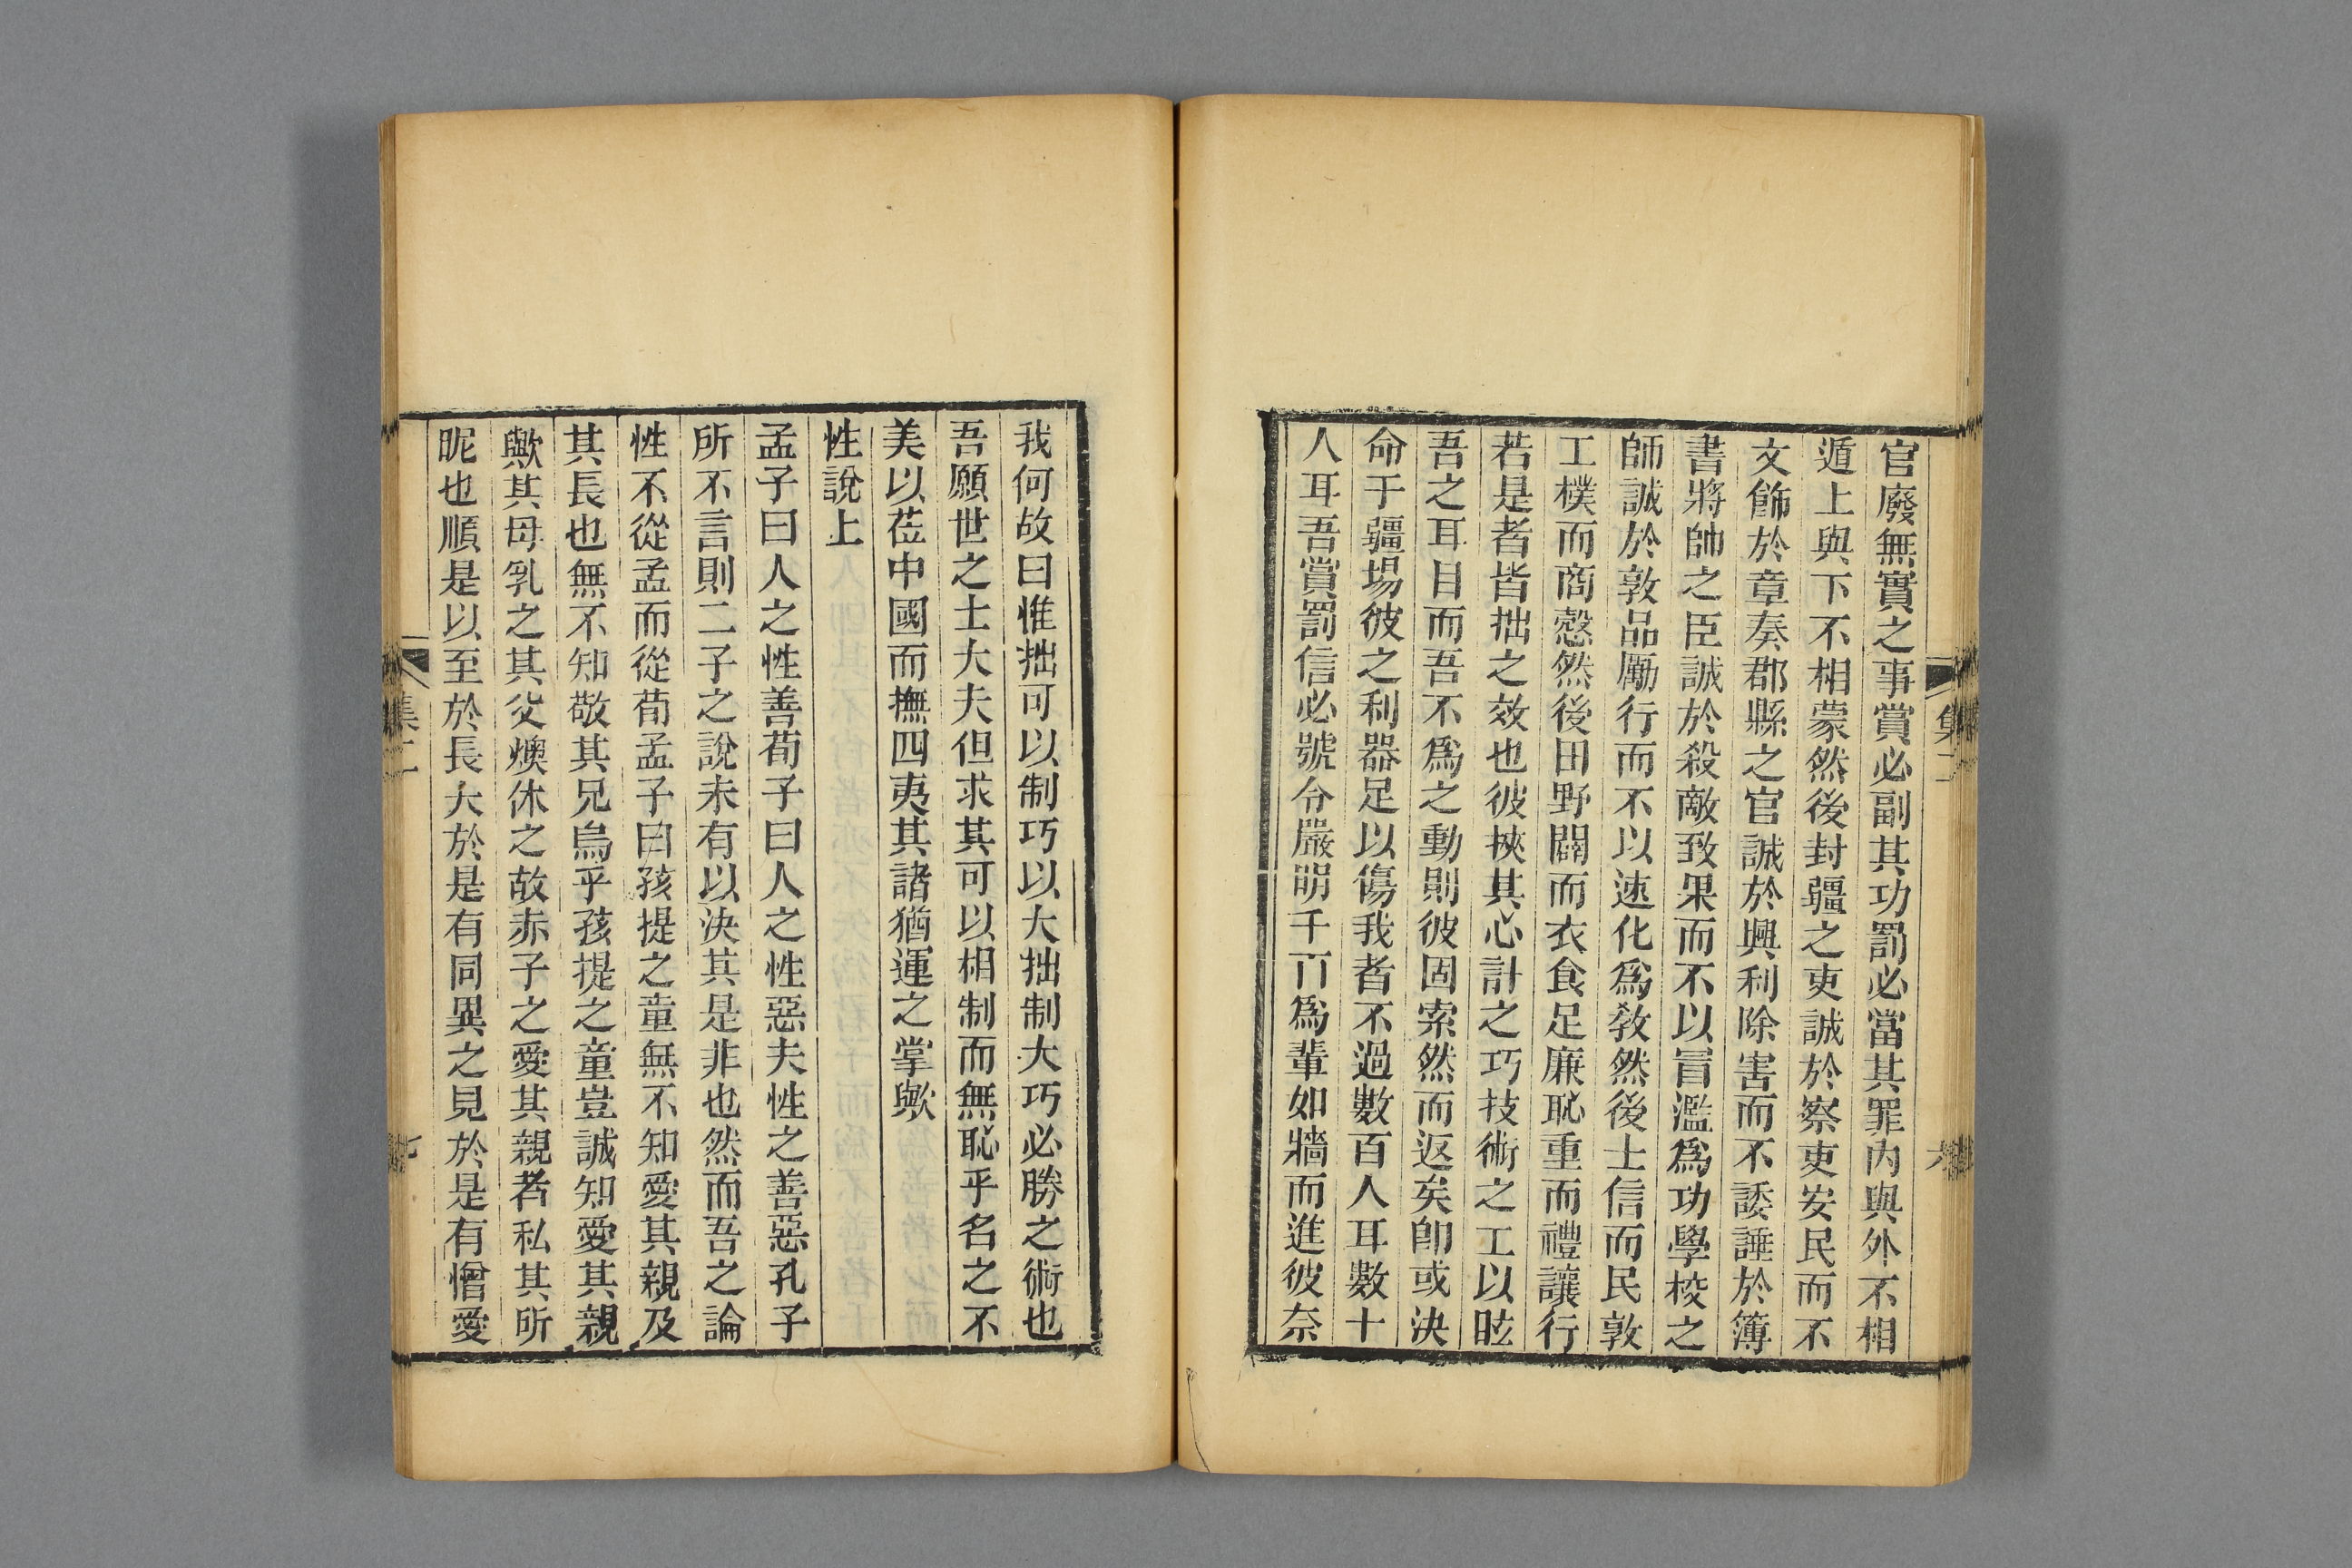 官廢無實之事賞必副其功罰必當其罪內與外不相
遁上與下不相蒙然後封疆之吏誠於察吏安民而不
文飾於章奏郡縣之官誠於興利除害而不諉諈於簿
書將帥之臣誠於殺敵致果而不以冒濫爲功學校之
師誠於敦品勵行而不以速化爲敎然後士信而民敦
工樸而商慤然後田野闢而衣食足廉恥重而禮讓行
若是者皆拙之效也彼挾其心計之巧技術之工以眩
吾之耳目而吾不爲之動則彼固索然而返矣卽或決
命于疆場彼之利器足以傷我者不過數百人耳數十
人耳吾賞罰信必號令嚴明千百爲輩如牆而進彼奈
集二
六
我何故曰惟拙可以制巧以大拙制大巧必勝之術也
吾願世之士大夫但求其可以相制而無恥乎名之不
美以莅中國而撫四夷其諸猶運之掌歟
性說上
孟子曰人之性善荀子曰人之性惡夫性之善惡孔子
所不言則二子之說未有以決其是非也然而吾之論
性不從孟而從荀孟子曰孩提之童無不知愛其親及
其長也無不知敬其兄烏乎孩提之童豈誠知愛其親
歟其母乳之其父燠休之故赤子之愛其親者私其所
昵也順是以至於長大於是有同異之見於是有憎愛
集二
七